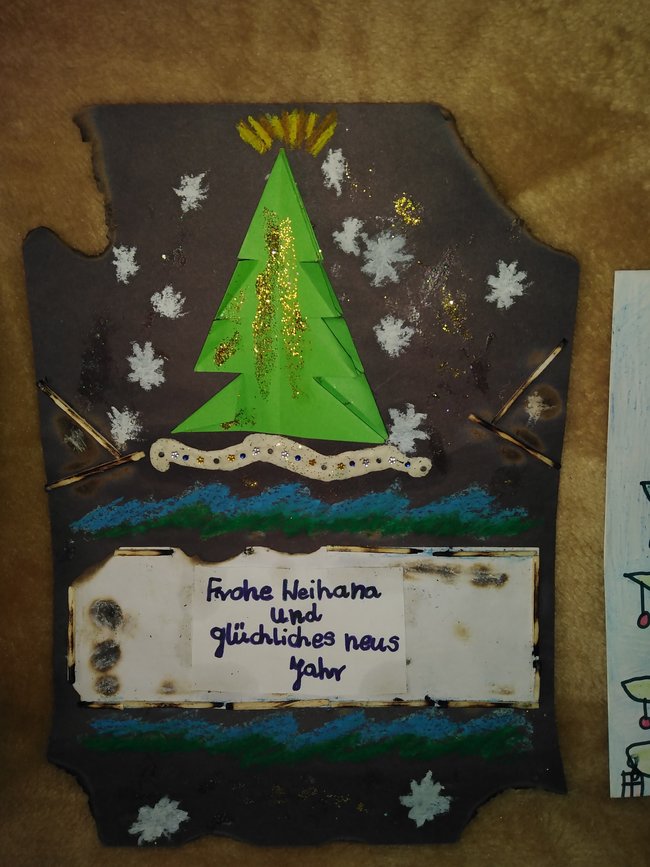 Frohe Weihana
und
glüchliches neus
Jahr